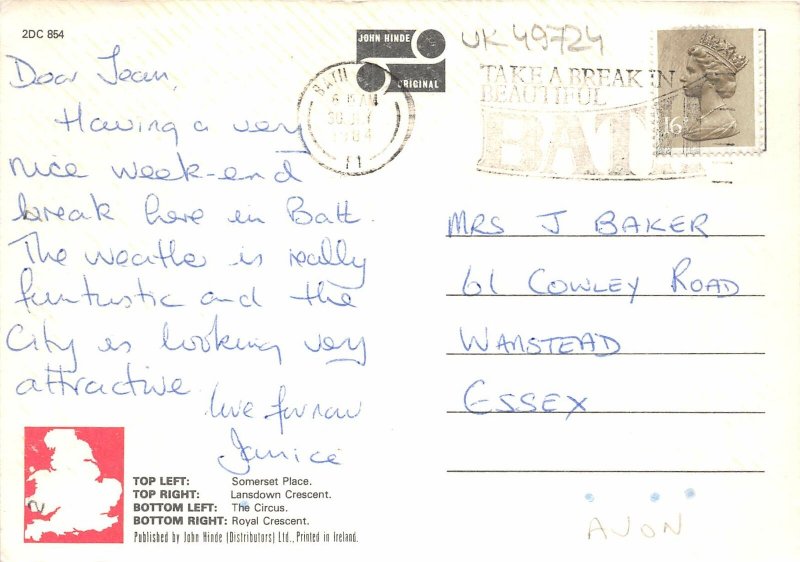 2DC 854
JOHN HINDE
ORIGINAL
UK 49724
BATH
TAKE A BREAK IN
BEAUTIFUL
BATH
16
Dear Jean,
Having a very
nice week-end
break here in Bath.
The weather is really
funtastic and the
City is looking very
attractive.
love for now
Janice
MRS J BAKER
61 COWLEY ROAD
WANSTEAD
ESSEX
TOP LEFT: Somerset Place.
TOP RIGHT: Lansdown Crescent.
BOTTOM LEFT: The Circus.
BOTTOM RIGHT: Royal Crescent.
Published by John Hinde (Distributors) Ltd., Printed in Ireland.
2
AVON